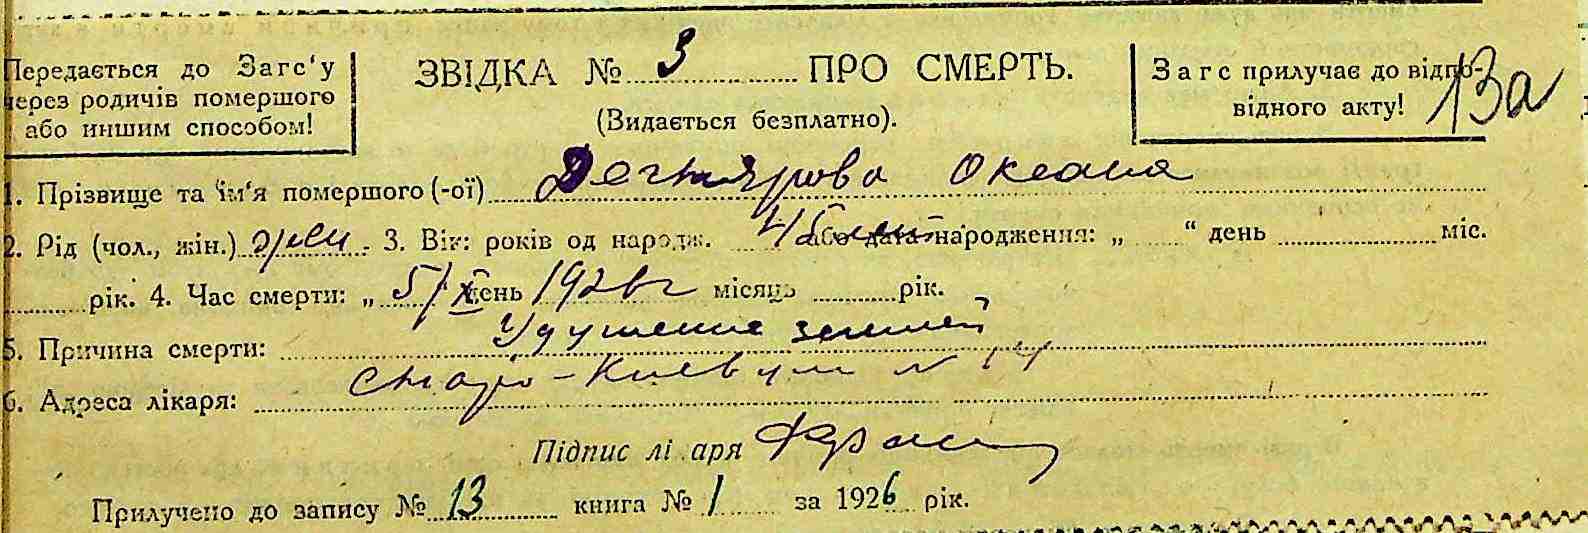 Передається до Загс‘у
через родичів помершого
або иншим способом!
ЗВІДКА № 3 ПРО СМЕРТЬ.
(Видається безплатно).
Загс прилучає до відпо-
відного акту!
13а
1. Прізвище та ім‘я помершого (-ої) Дегтярова Оксана
2. Рід (чол., жін.) жен. 3. Вік: років од народж. 45 лет або дата народження: „ “ день міс.
рік. 4. Час смерти: „ 5/X день 1926 г місяць рік.
5. Причина смерти: Удушение землей
6. Адреса лікаря: Старо-Киев ул N 14
Підпис лікаря
Прилучено до запису № 13 книга № 1 за 1926 рік.